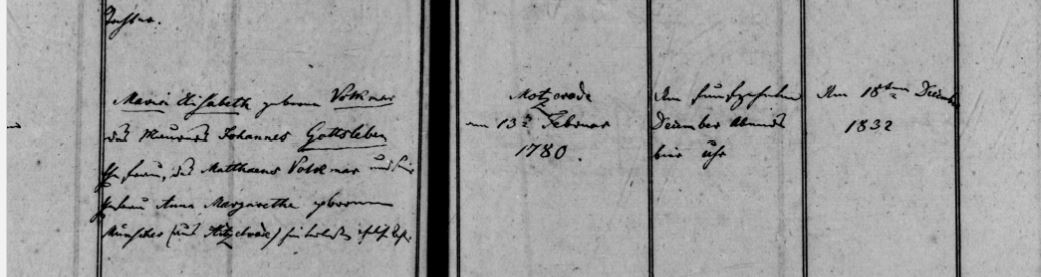 Tochter.
Maria Elisabeth geborne Volkmar
des Maurers Johannes Gottsleben
Ehefrau, des Matthaeus Volkmar und
Ehefrau Anna Margarethe geborene
(aus Hitzelrode)
Motzerode
am 13ten Februar
1780.
Am fünfzehnten
December Abends
Uhr
Am 18ten December
1832